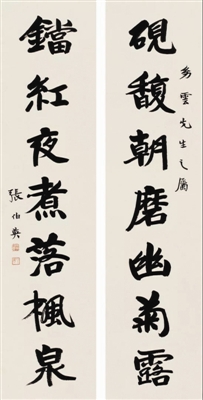 秀雲先生之屬
硯馥朝磨幽菊露
鐺紅夜煮落楓泉
張伯英